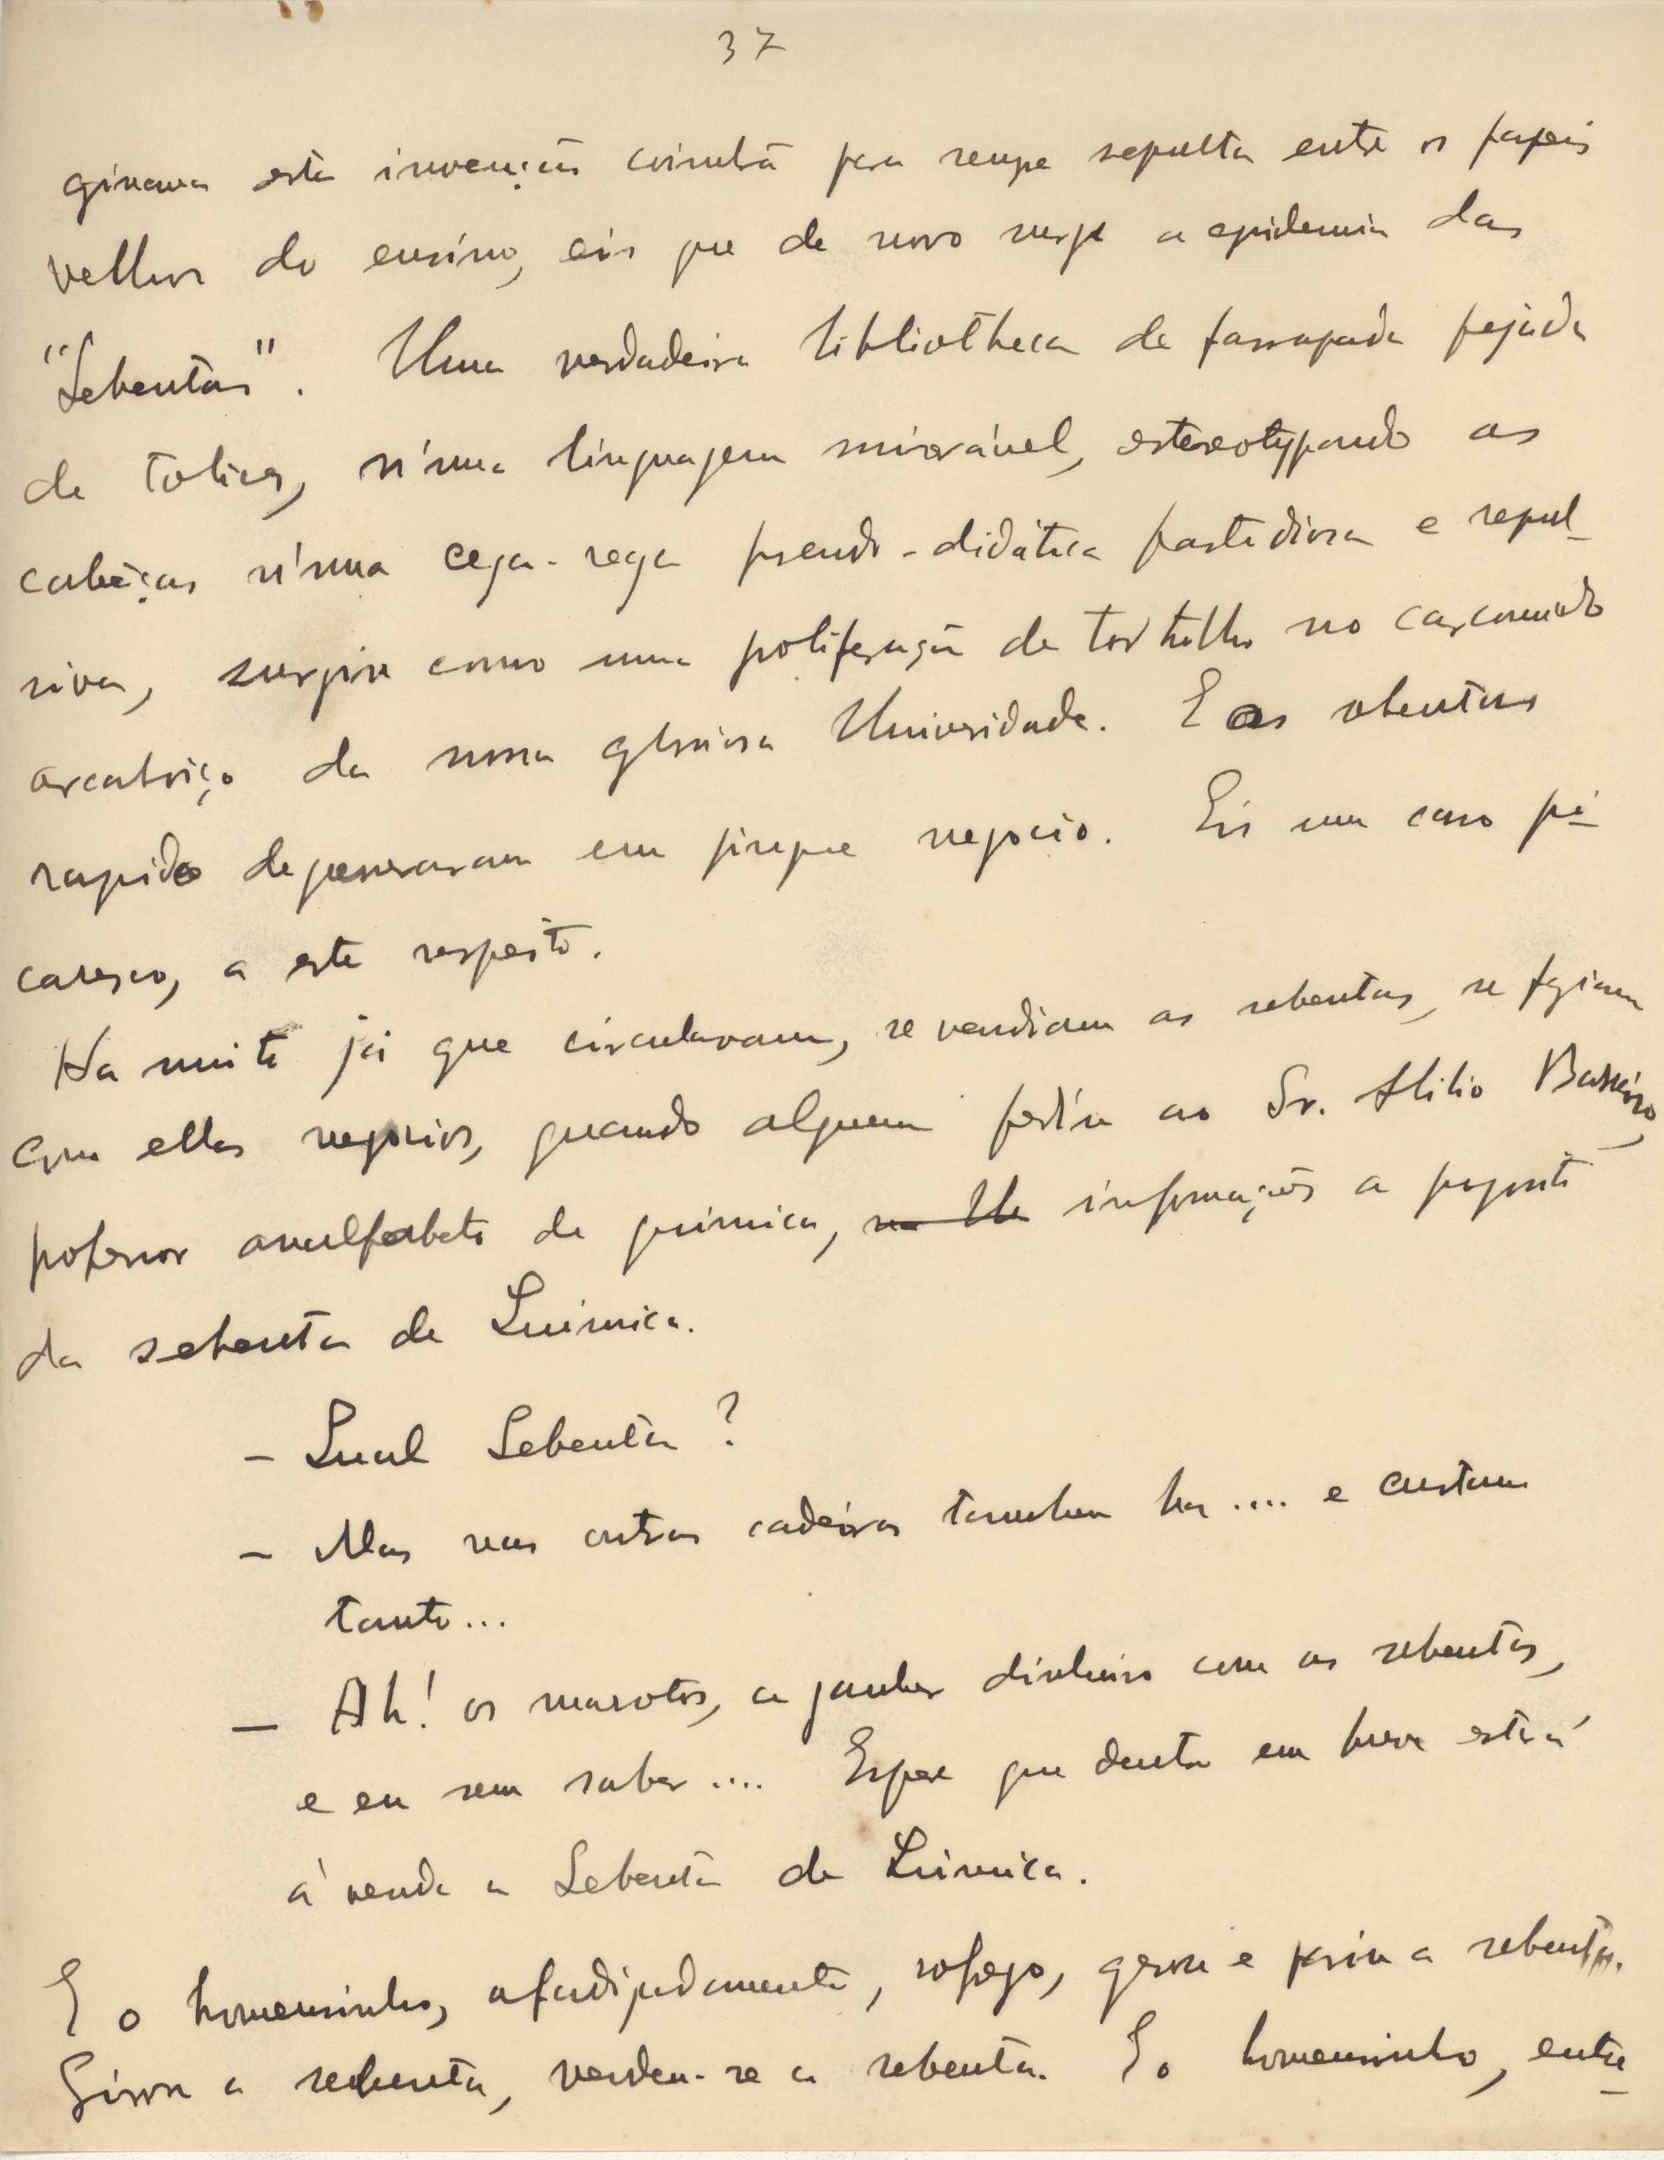 37
ginava esta invenção coimbrã para sempre sepulta entre os papeis
velhos do ensino, eis que de novo surge a epidemia das
"Sebentas". Uma verdadeira bibliotheca de farrapada pejada
de tolices, n'uma linguagem miserável, estereotypando as
cabêças n'uma cega-rega pseudo-didática fastidiosa e repul-
siva, surgiu como uma poliferação de tortulho no carcomido
arcaboiço da nossa gloriosa Universidade. E as sebentas
rapido degeneraram em pingue negocio. Eis um caso pi-
caresco, a este respeito.
Ha muito já que circulavam, se vendiam as sebentas, se faziam
com ellas negocios, quando alguem pediu ao Sr.
professor analfabeto de quimica, informações a proposito
da sebenta de Quimica.
- Qual Sebenta?
- Mas nas outras cadeiras tambem ha.... e custam
tanto...
- Ah! os marotos, a ganhar dinheiro com as sebentas,
e eu sem saber.... Espere que dentro em breve estará
á venda a Sebenta de Quimica.
E o homensinho, afadigadamente, sofrego, gerou e pariu a sebenta.
Girou a sebenta, vendeu-se a sebenta. E o homensinho, entre-